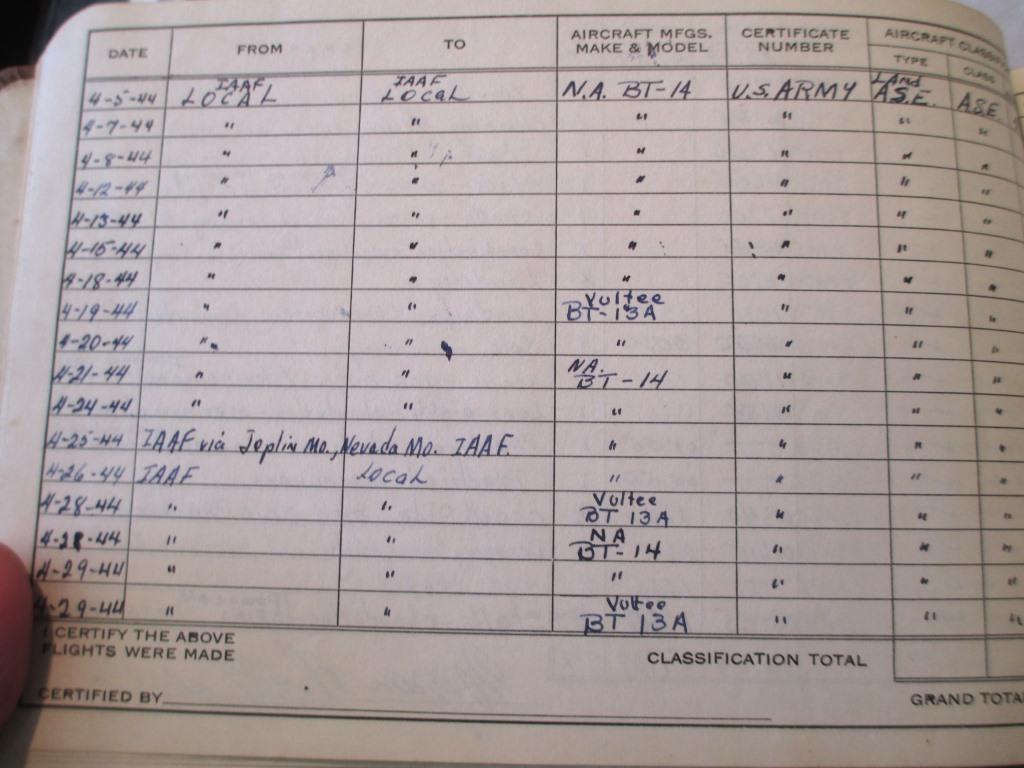 DATE FROM TO AIRCRAFT MFGS. MAKE & MODEL CERTIFICATE NUMBER AIRCRAFT CLASSIF
TYPE CLASS
4-5-44 IAAF LOCAL IAAF LOCAL N.A. BT-14 U.S. ARMY LAnd A.S.E. A.S.E.
4-7-44 " " " " " "
4-8-44 " " " " " "
4-12-44 " " " " " "
4-13-44 " " " " " "
4-15-44 " " " " " "
4-18-44 " " " " " "
4-19-44 " " Vultee BT-13A " " "
4-20-44 " " " " " "
4-21-44 " " N.A. BT-14 " " "
4-24-44 " " " " " "
4-25-44 IAAF via Joplin Mo., Nevada Mo. IAAF. " " " "
4-26-44 IAAF LOCAL " " " "
4-28-44 " " Vultee BT 13A " " "
4-28-44 " " NA BT-14 " " "
4-29-44 " " " " " "
4-29-44 " " Vultee BT 13A " " "
I CERTIFY THE ABOVE
FLIGHTS WERE MADE
CLASSIFICATION TOTAL
CERTIFIED BY
GRAND TOTA